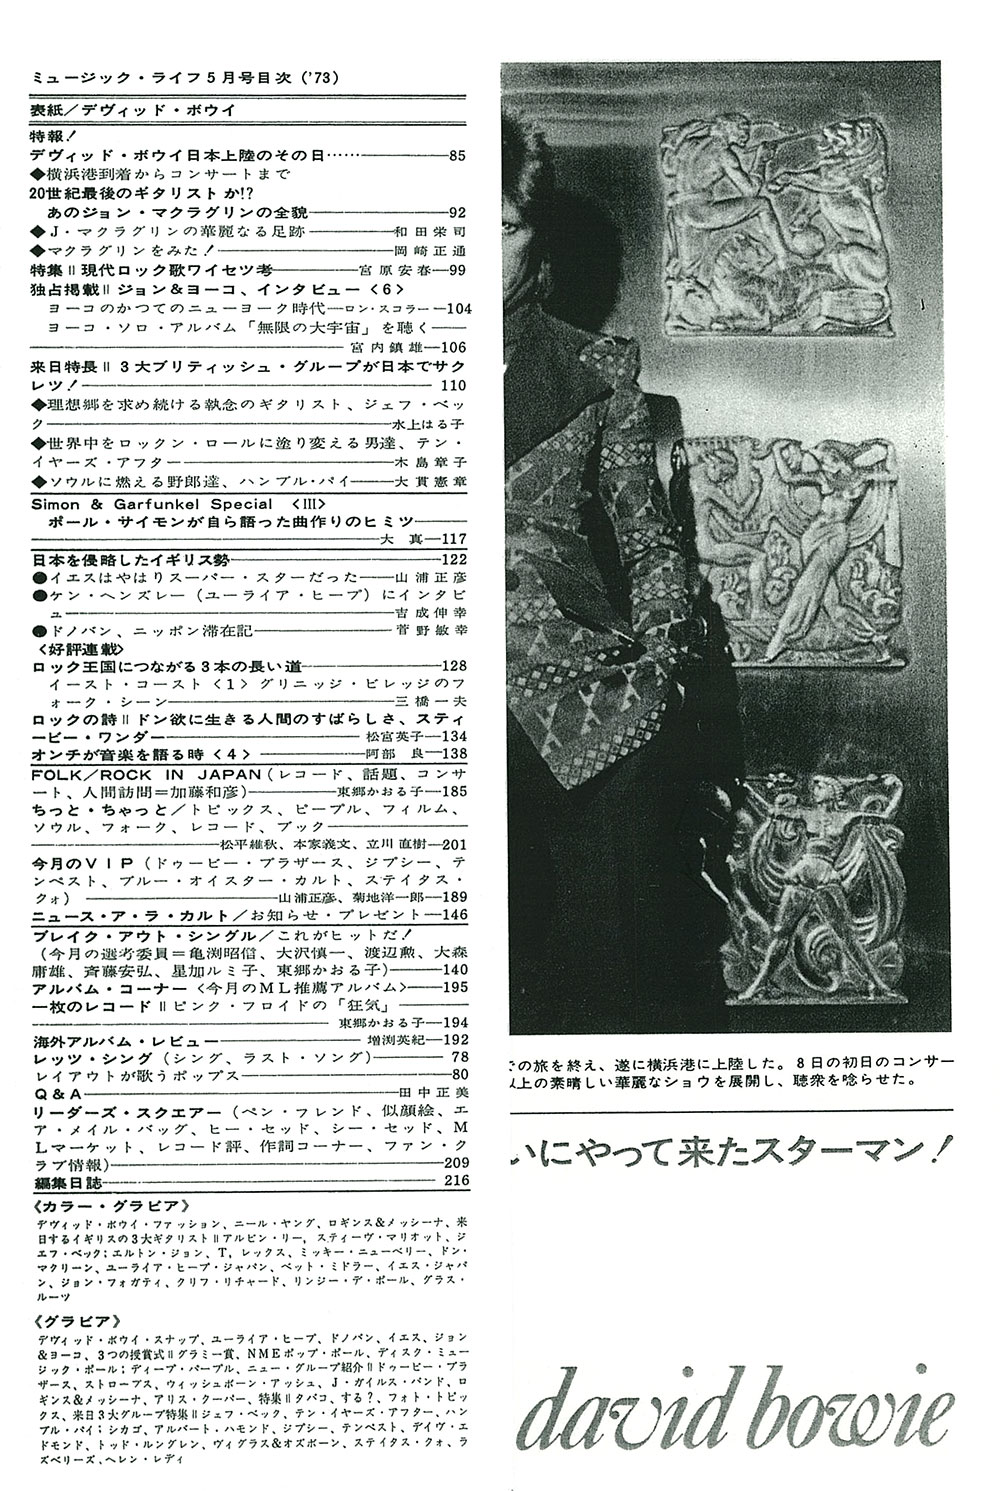 ミュージック・ライフ5月号目次（'73）
表紙／デヴィッド・ボウイ
特報！
デヴィッド・ボウイ日本上陸のその日……―85
◆横浜港到着からコンサートまで
20世紀最後のギタリストか!?
あのジョン・マクラグリンの全貌―92
◆J・マクラグリンの華麗なる足跡―和田栄司
◆マクラグリンをみた！―岡崎正通
特集‖現代ロック歌ワイセツ考―宮原安春―99
独占掲載‖ジョン＆ヨーコ、インタビュー〈6〉
ヨーコのかつてのニューヨーク時代―ロン・スコラー―104
ヨーコ・ソロ・アルバム「無限の大宇宙」を聴く―
―宮内鎮雄―106
来日特長‖3大ブリティッシュ・グループが日本でサク
レツ！―110
◆理想郷を求め続ける執念のギタリスト、ジェフ・ベッ
ク―水上はる子
◆世界中をロックン・ロールに塗り変える男達、テン・
イヤーズ・アフター―木島章子
◆ソウルに燃える野郎達、ハンブル・パイ―大貫憲章
Simon & Garfunkel Special 〈III〉
ポール・サイモンが自ら語った曲作りのヒミツ―
―大 真―117
日本を侵略したイギリス勢―122
●イエスはやはりスーパー・スターだった―山浦正彦
●ケン・ヘンズレー（ユーライア・ヒープ）にインタビ
ュー―吉成伸幸
●ドノバン、ニッポン滞在記―菅野敏幸
〈好評連載〉
ロック王国につながる3本の長い道―128
イースト・コースト〈1〉グリニッジ・ビレッジのフ
ォーク・シーン―三橋一夫
ロックの詩‖ドン欲に生きる人間のすばらしさ、スティ
ービー・ワンダー―松宮英子―134
オンチが音楽を語る時〈4〉―阿部 良―138
FOLK／ROCK IN JAPAN（レコード、話題、コンサ
ート、人間訪問＝加藤和彦）―東郷かおる子―185
ちっと・ちゃっと／トピックス、ピープル、フィルム、
ソウル、フォーク、レコード、ブック―
―松平維秋、本家義文、立川直樹―201
今月のVIP（ドゥービー・ブラザース、ジプシー、テ
ンペスト、ブルー・オイスター・カルト、ステイタス・
クォ）―山浦正彦、菊地洋一郎―189
ニュース・ア・ラ・カルト／お知らせ・プレゼント―146
ブレイク・アウト・シングル／これがヒットだ！
（今月の選考委員＝亀渕昭信、大沢慎一、渡辺勲、大森
庸雄、斉藤安弘、星加ルミ子、東郷かおる子）―140
アルバム・コーナー〈今月のML推薦アルバム〉―195
一枚のレコード‖ピンク・フロイドの「狂気」―
―東郷かおる子―194
海外アルバム・レビュー―増渕英紀―192
レッツ・シング（シング、ラスト・ソング）―78
レイアウトが歌うポップス―80
Q＆A―田中正美
リーダーズ・スクエアー（ペン・フレンド、似顔絵、エ
ア・メイル・バッグ、ヒー・セッド、シー・セッド、M
Lマーケット、レコード評、作詞コーナー、ファン・ク
ラブ情報）―209
編集日誌―216
《カラー・グラビア》
デヴィッド・ボウイ・ファッション、ニール・ヤング、ロギンス＆メッシーナ、来
日するイギリスの3大ギタリスト‖アルビン・リー，スティーヴ・マリオット、ジ
エフ・ベック；エルトン・ジョン、T，レックス、ミッキー・ニューベリー、ドン・
マクリーン、ユーライア・ヒープ・ジャパン、ベット・ミドラー、イエス・ジャパ
ン、ジョン・フォガティ、クリフ・リチャード、リンジー・デ・ポール、グラス・
ルーツ
《グラビア》
デヴィッド・ボウイ・スナップ、ユーライア・ヒープ、ドノバン、イエス、ジョン
＆ヨーコ、3つの授賞式‖グラミー賞、NMEポップ・ポール、ディスク・ミュー
ジック・ポール；ディープ・パープル、ニュー・グループ紹介‖ドゥービー・ブラ
ザース、ストローブス、ウィッシュボーン・アッシュ、J・ガイルス・バンド、ロ
ギンス＆メッシーナ、アリス・クーパー、特集‖タバコ、する？、フォト・トピッ
クス、来日3大グループ特集‖ジェフ・ベック、テン・イヤーズ・アフター、ハン
ブル・パイ；シカゴ、アルバート・ハモンド、ジプシー、テンペスト、デイヴ・エ
ドモンド、トッド・ルングレン、ヴィグラス＆オズボーン、ステイタス・クォ、ラ
ズベリーズ、ヘレン・レディ
の旅を終え、遂に横浜港に上陸した。8日の初日のコンサー
以上の素晴しい華麗なショウを展開し、聴衆を唸らせた。
いにやって来たスターマン！
david bowie